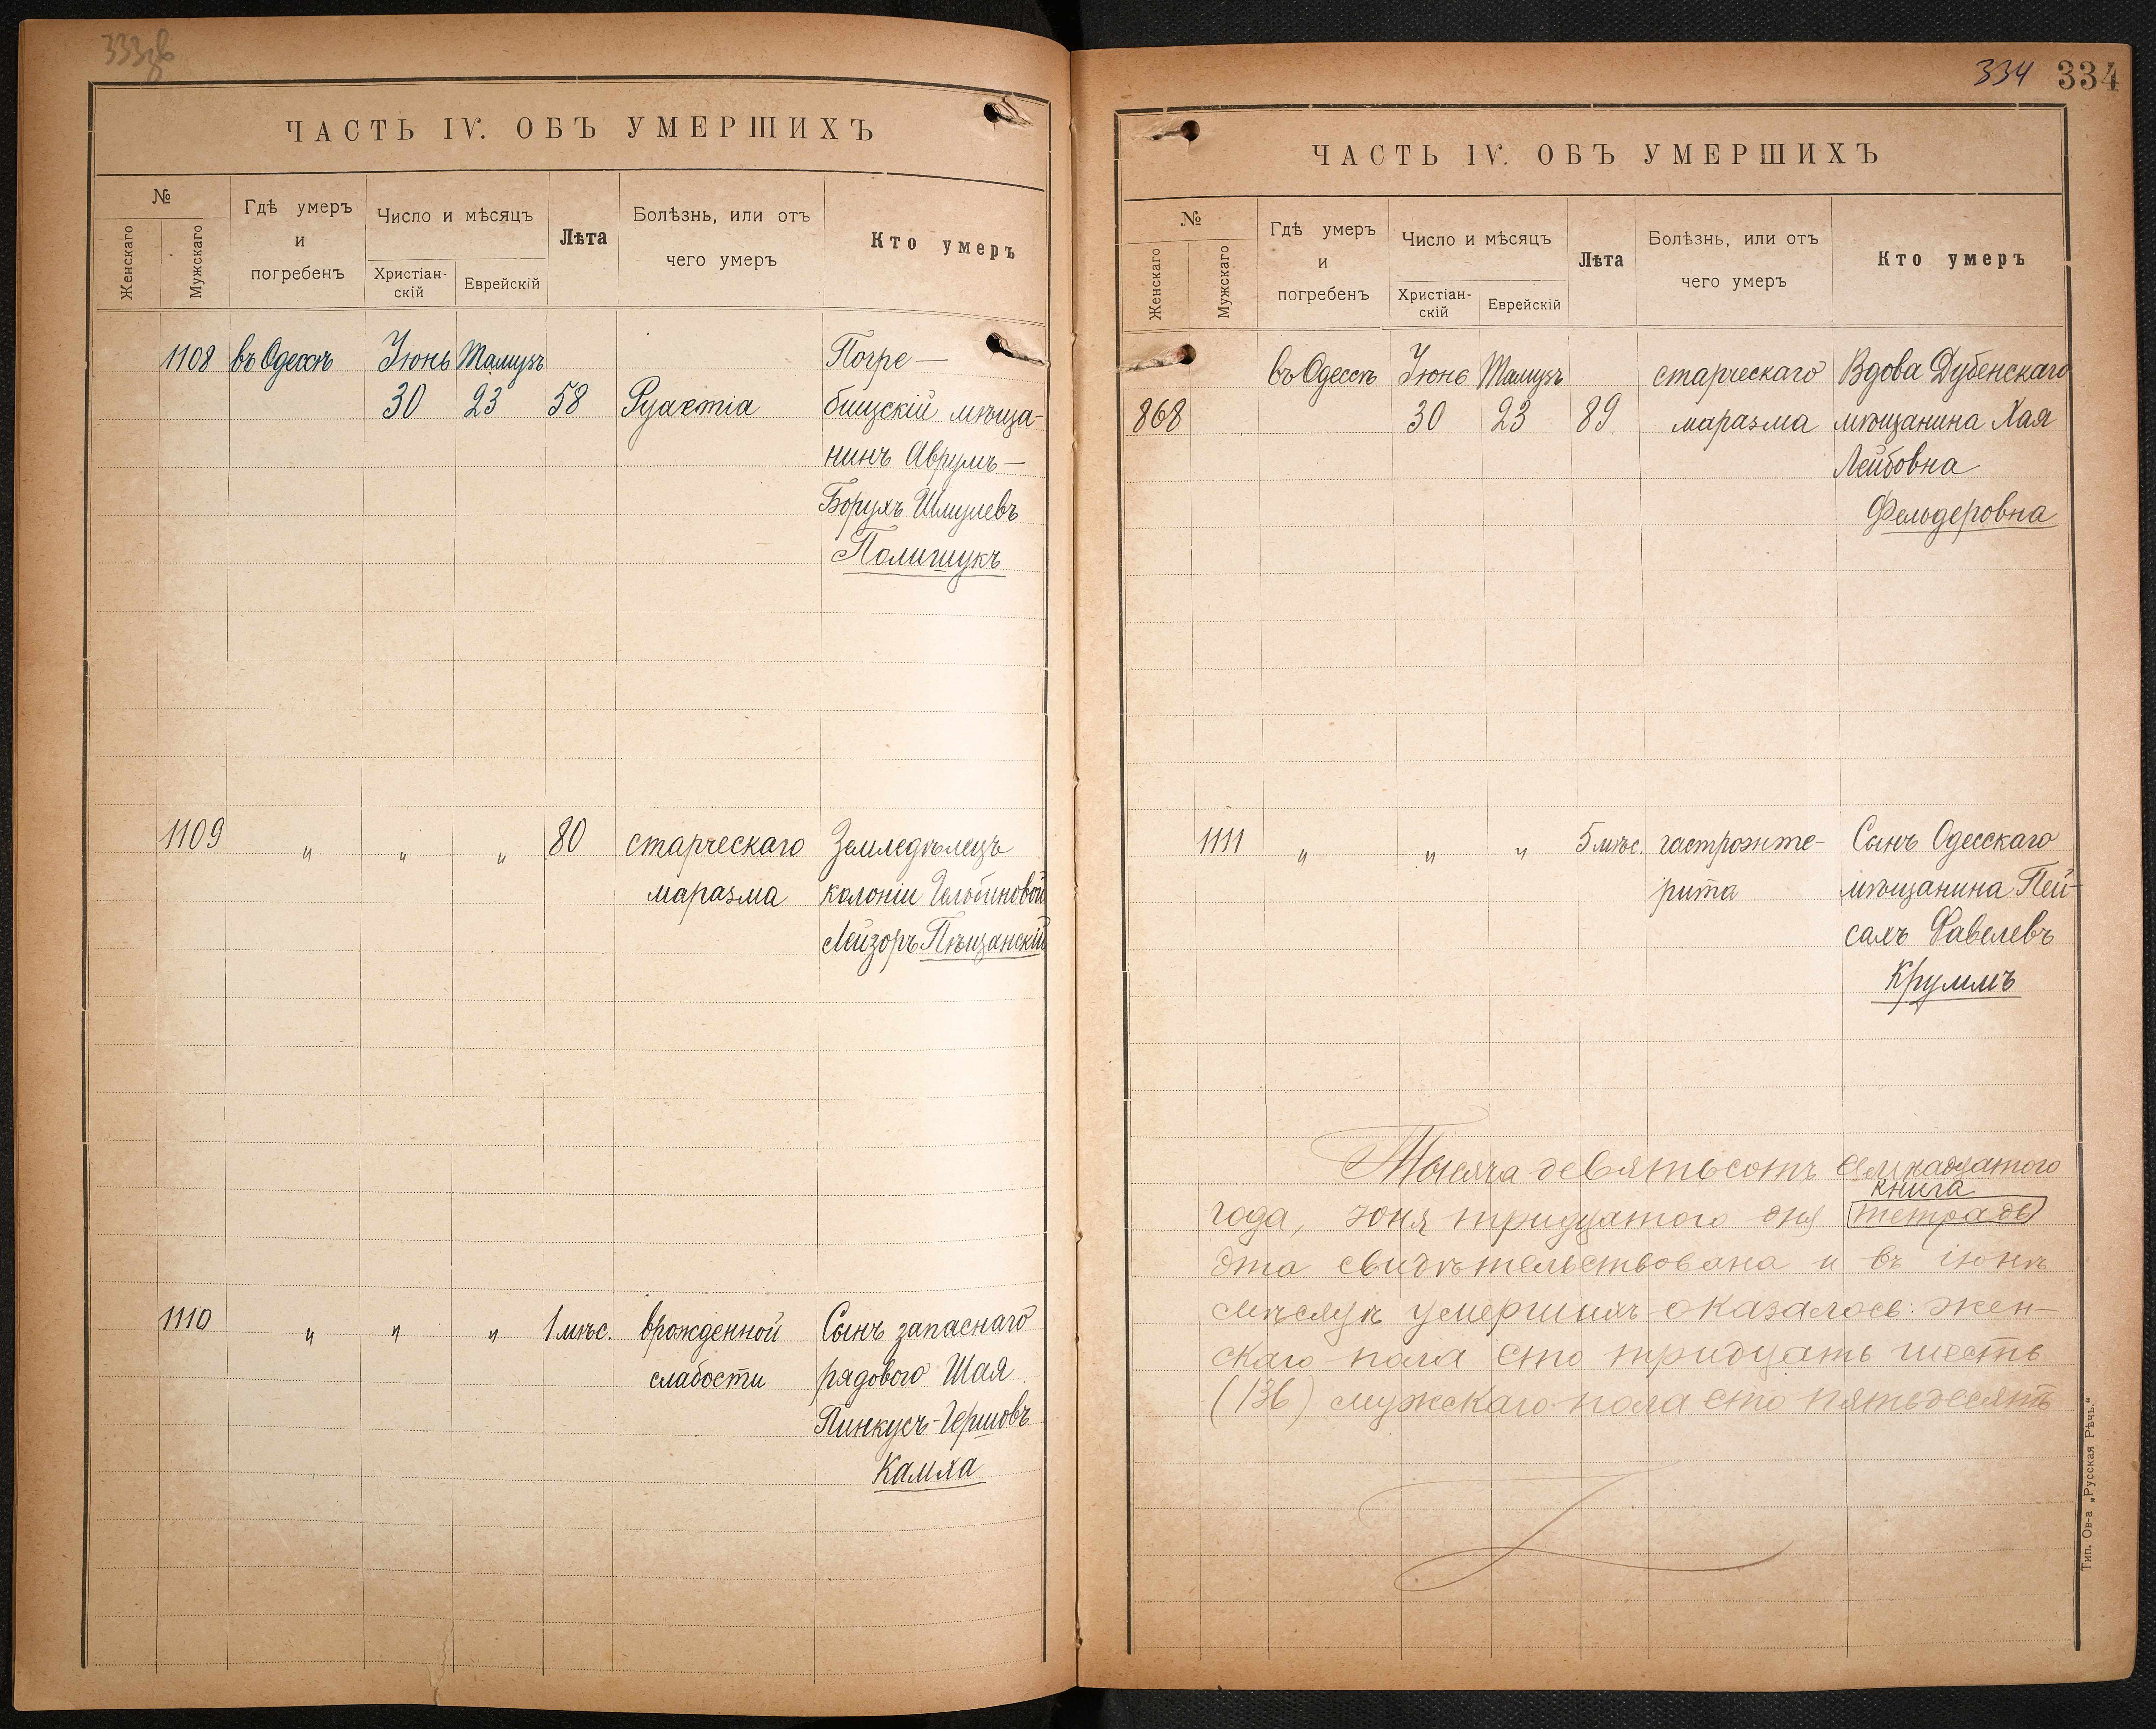 333
ЧАСТЬ IV. ОБЪ УМЕРШИХЪ
№
Женскаго
Мужскаго
Гдѣ умеръ
и
погребенъ
Число и мѣсяцъ
Христіан-
скій
Еврейскій
Лѣта
Болѣзнь, или отъ
чего умеръ
Кто умеръ
1108 въ Одессѣ Іюнь Тамузъ Погре-
30 23 58 бищскій мѣща-
нинъ Аврумъ-
Борухъ Шмулевъ
Полишукъ
1109 " " " 80 старческаго Земледѣлецъ
маразма колоніи
Лейзоръ Пѣщанскій
1110 " " " 1 мѣс. врожденной Сынъ запаснаго
слабости рядового Шая
Пинкусъ-Гершовъ
Камха
334 334
ЧАСТЬ IV. ОБЪ УМЕРШИХЪ
№
Женскаго
Мужскаго
Гдѣ умеръ
и
погребенъ
Число и мѣсяцъ
Христіан-
скій
Еврейскій
Лѣта
Болѣзнь, или отъ
чего умеръ
Кто умеръ
въ Одессѣ Іюнь Тамузъ старческаго Вдова Дубенскаго
868 30 23 89 маразма мѣщанина Хая
Лейбовна
Фельдеровна
1111 " " " 5 мѣс. гастроэнте-
рита
Сынъ Одесскаго
мѣщанина Пей-
сахъ Фавелевъ
Круммъ
Тысяча девятьсотъ семнадцатого
книга
года, іюня тридцатого дня тетрадь
эта свидѣтельствована и въ іюнѣ
мѣсяцѣ умершихъ оказалось: жен-
скаго пола сто тридцать шесть
(136) мужскаго пола сто пятьдесятъ
Тип. О-ва „Русская Рѣчь."